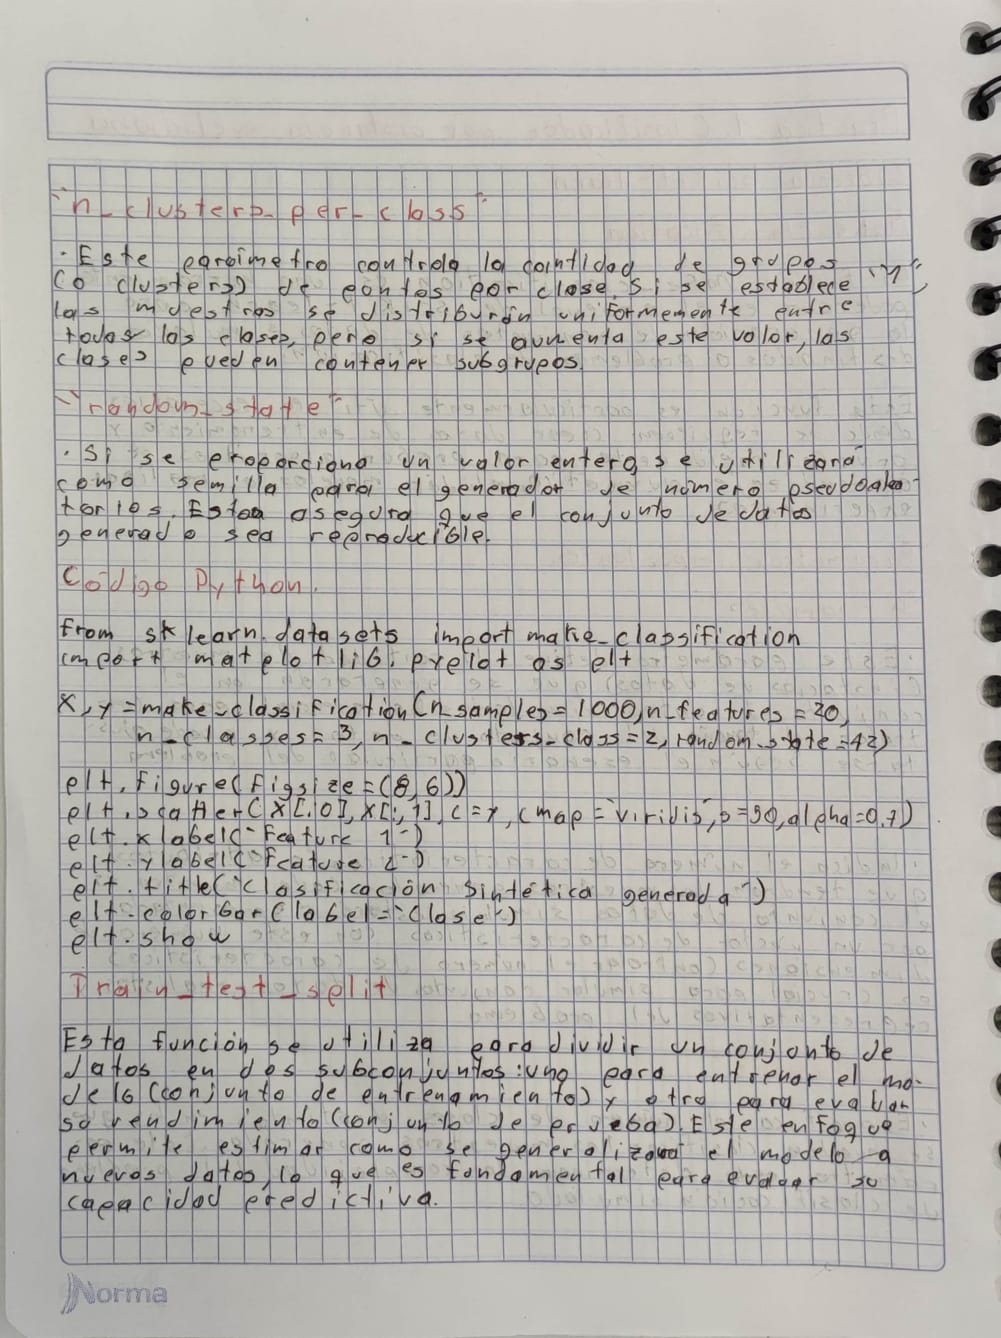 "n_clusters_per_class"
· Este parámetro controla la cantidad de grupos
(o clusters) de puntos por clase. Si se establece "1",
las muestras se distriburán uniformemente entre
todas las clases, pero si se aumenta este valor, las
clases pueden contener subgrupos.
"random_state"
· Si se proporciona un valor entero, se utilizará
como semilla para el generador de número pseudoalea
torios. Esto asegura que el conjunto de datos
generado sea reproducible.
Códgo Python.
from sklearn.datasets import make_classification
import matplotlib.pyplot as plt
X, y = make_classification(n_samples=1000, n_features=20,
n_classes=3, n_clusters_class=2, random_state=42)
plt.figure(figsize=(8,6))
plt.scatter(X[:,0], X[:,1], c=y, cmap="viridis", s=50, alpha=0.7)
plt.xlabel("Feature 1")
plt.ylabel("Feature 2")
plt.title("Clasificación Sintética generada")
plt.colorbar(label="Clase")
plt.show
Train_test_split
Esta función se utiliza para dividir un conjunto de
datos en dos subconjuntos: uno para entrenar el mo-
delo (conjunto de entrenamiento) y otro para evaluar
su rendimiento (conjunto de prueba). Este enfoque
permite estimar como se generalizará el modelo a
nuevos datos, lo que es fundamental para evaluar su
capacidad predictiva.
Norma